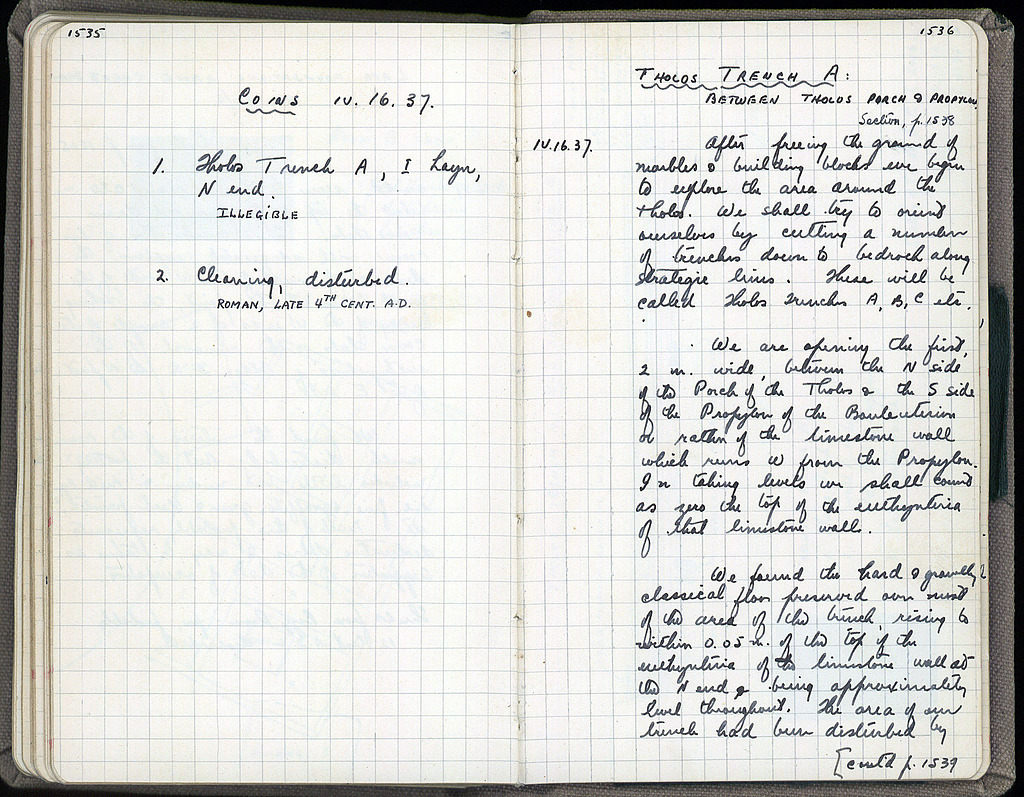 1535
Coins IV. 16. 37.
1. Tholos Trench A, I Layer,
N end.
ILLEGIBLE
2. Cleaning, disturbed.
ROMAN, LATE 4TH CENT. A.D.
1536
THOLOS TRENCH A:
BETWEEN THOLOS PORCH & PROPYLON
Section, p. 1538
IV.16.37. After freeing the ground of
marbles & building blocks we begin
to explore the area around the
Tholos. We shall try to orient
ourselves by cutting a number
of trenches down to bedrock along
strategic lines. These will be
called Tholos Trenches A, B, C etc.
We are opening the first,
2 m. wide, between the N side
of the Porch of the Tholos & the S side
of the Propylon of the Bouleuterion
or rather of the limestone wall
which runs W from the Propylon.
In taking levels we shall count
as zero the top of the euthynteria
of that limestone wall.
We found the hard & gravelly
classical floor preserved over most
of the area of the trench, rising to
within 0.05 m. of the top of the
euthynteria of the limestone wall at
the N end & being approximately
level throughout. The area of our
trench had been disturbed by
[cont'd p. 1539